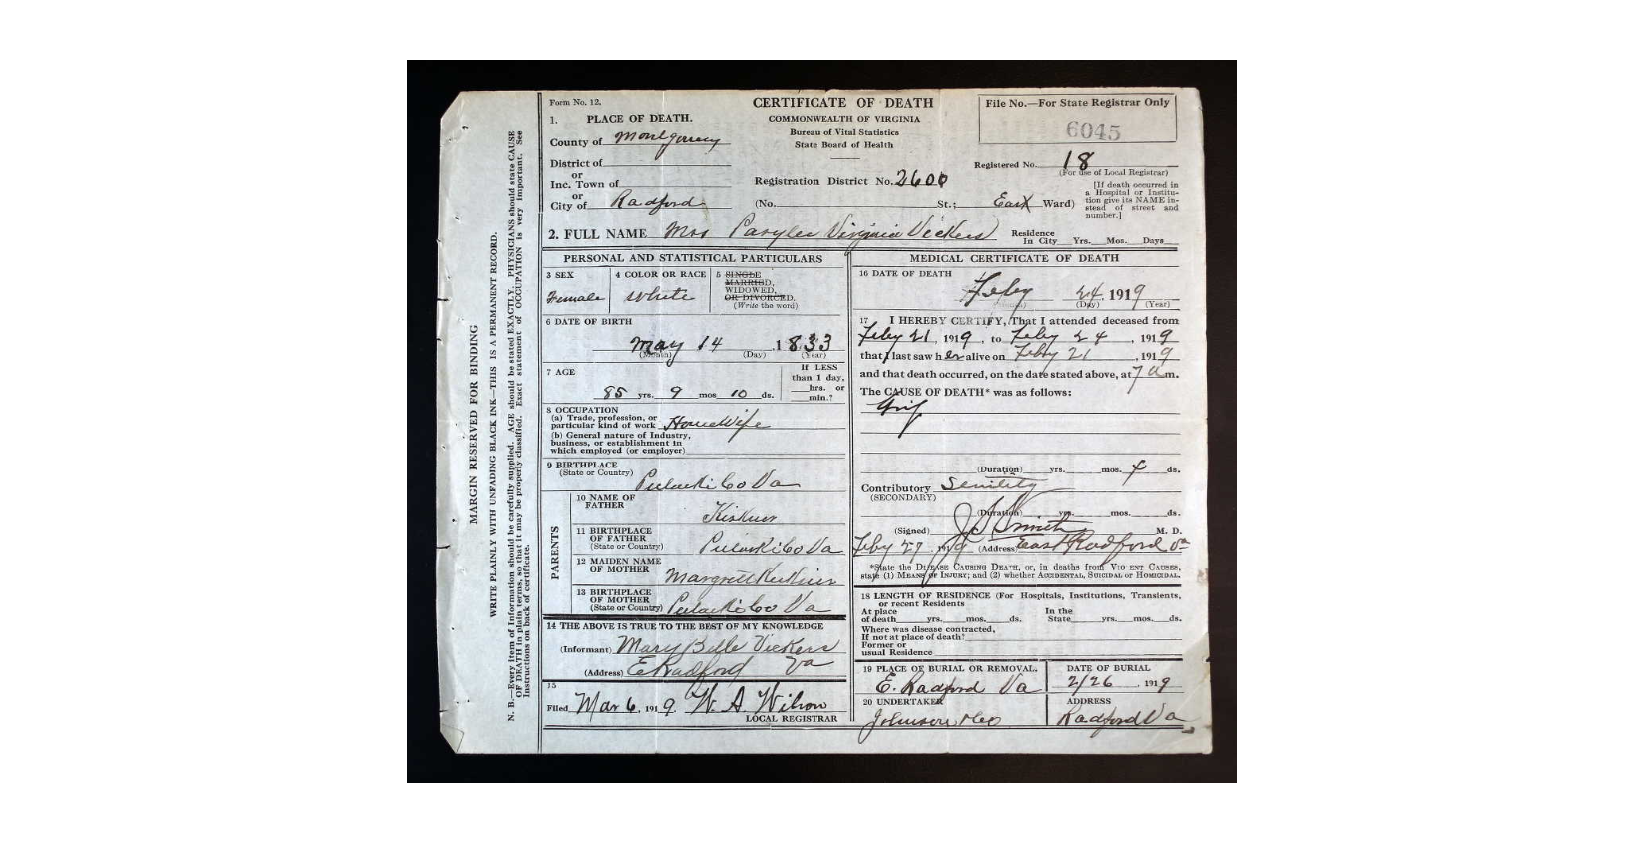 MARGIN RESERVED FOR BINDING
WRITE PLAINLY WITH UNFADING BLACK INK—THIS IS A PERMANENT RECORD.
N. B.—Every item of information should be carefully supplied. AGE should be stated EXACTLY. PHYSICIANS should state CAUSE
OF DEATH in plain terms, so that it may be properly classified. Exact statement of OCCUPATION is very important. See
instructions on back of certificate.
Form No. 12.
CERTIFICATE OF DEATH
File No.—For State Registrar Only
1. PLACE OF DEATH.
COMMONWEALTH OF VIRGINIA
6045
County of Montgomery
Bureau of Vital Statistics
State Board of Health
District of
Registered No. 18
(For use of Local Registrar)
or
Inc. Town of
Registration District No. 2600
[If death occurred in
a Hospital or Institu-
tion give its NAME in-
stead of street and
number.]
or
City of Radford
(No. St.; East Ward)
2. FULL NAME Mrs Virginia Vickers
Residence
In City Yrs. Mos. Days
PERSONAL AND STATISTICAL PARTICULARS
3 SEX
Female
4 COLOR OR RACE
White
5 SINGLE
MARRIED,
WIDOWED,
OR DIVORCED.
(Write the word)
6 DATE OF BIRTH
May 14 1833
(Month) (Day) (Year)
7 AGE
85 yrs. 9 mos 10 ds.
If LESS
than 1 day,
hrs. or
min.?
8 OCCUPATION
(a) Trade, profession, or
particular kind of work HouseWife
(b) General nature of Industry,
business, or establishment in
which employed (or employer)
9 BIRTHPLACE
(State or Country)
Pulaski Co Va
PARENTS
10 NAME OF
FATHER
11 BIRTHPLACE
OF FATHER
(State or Country) Pulaski Co Va
12 MAIDEN NAME
OF MOTHER
Margrett
13 BIRTHPLACE
OF MOTHER
(State or Country) Pulaski Co Va
14 THE ABOVE IS TRUE TO THE BEST OF MY KNOWLEDGE
(Informant) Mary Belle Vickers
(Address) E Radford Va
15
Filed Mar 6, 1919. W. A. Wilson
LOCAL REGISTRAR
MEDICAL CERTIFICATE OF DEATH
16 DATE OF DEATH
Feby 24, 1919
(Month) (Day) (Year)
17 I HEREBY CERTIFY, That I attended deceased from
Feby 21, 1919, to Feby 24, 1919
that I last saw her alive on Feby 21, 1919
and that death occurred, on the date stated above, at 7 a m.
The CAUSE OF DEATH* was as follows:
Grip
(Duration) yrs. mos. ds.
Contributory Senility
(SECONDARY)
(Duration) yrs. mos. ds.
(Signed) J S Smith M. D.
Feby 27, 1919 (Address) East Radford Va
*State the DISEASE CAUSING DEATH, or, in deaths from VIOLENT CAUSES,
state (1) MEANS OF INJURY; and (2) whether ACCIDENTAL, SUICIDAL or HOMICIDAL.
18 LENGTH OF RESIDENCE (For Hospitals, Institutions, Transients,
or recent Residents
At place In the
of death yrs. mos. ds. State yrs. mos. ds.
Where was disease contracted,
If not at place of death?
Former or
usual Residence
19 PLACE OF BURIAL OR REMOVAL.
E. Radford Va
DATE OF BURIAL
2/26, 1919
20 UNDERTAKER
Johnson
ADDRESS
Radford Va